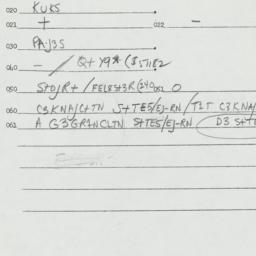 020 KUKS
021 + 022 -
030 PAJ3S
040 - / Q+Y9* ($51182
050 S+DJR+ / FELEST3R (240 051 0
060 C3KNA/C+TN S+TES/EJ-RN / T2T C3KNA/
061 A G3GR1NCLTN S+TES/EJ-RN D3 S+TE